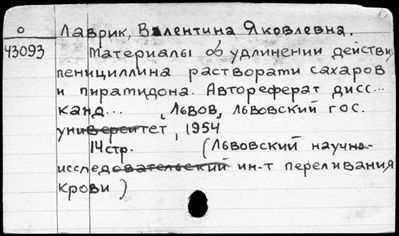 О Лаврик, Валентина Яковлевна.
43093 Материалы об удлинении действи
пенициллина растворати сахаров
и пиратидона. Автореферат дисс...
канд... , Львов, Львовский гос.
университет, 1954
14стр. (Львовский научно-
исследовательский ин-т переливания
крови)